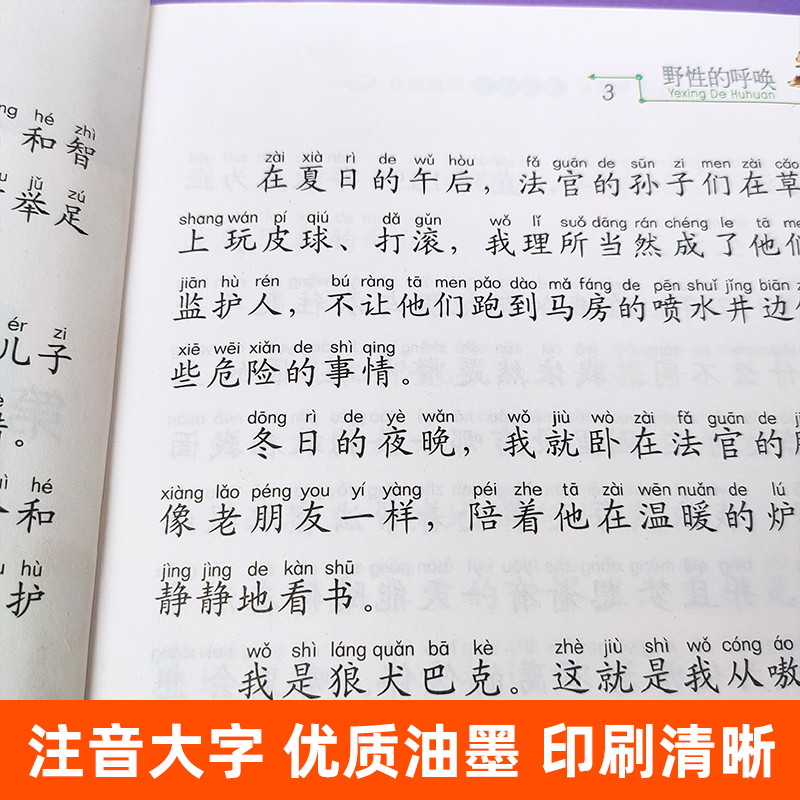 hé zhì
和智
jǔ zú
举足
ér zi
儿子
hé
和
hù
护
3
野性的呼唤
Yexing De Huhuan
zài xià rì de wǔ hòu fǎ guān de sūn zi men zài cǎo
在夏日的午后，法官的孙子们在草
shang wán pí qiú dǎ gǔn wǒ lǐ suǒ dāng rán chéng le tā me
上玩皮球、打滚，我理所当然成了他们
jiān hù rén bú ràng tā men pǎo dào mǎ fáng de pēn shuǐ jǐng biān
监护人，不让他们跑到马房的喷水井边
xiē wēi xiǎn de shì qing
些危险的事情。
dōng rì de yè wǎn wǒ jiù wò zài fǎ guān de
冬日的夜晚，我就卧在法官的
xiàng lǎo péng you yí yàng péi zhe tā zài wēn nuǎn de lú
像老朋友一样，陪着他在温暖的炉
jìng jìng de kàn shū
静静地看书。
wǒ shì láng quǎn bā kè zhè jiù shì wǒ cóng áo
我是狼犬巴克。这就是我从嗷
注音大字 优质油墨 印刷清晰